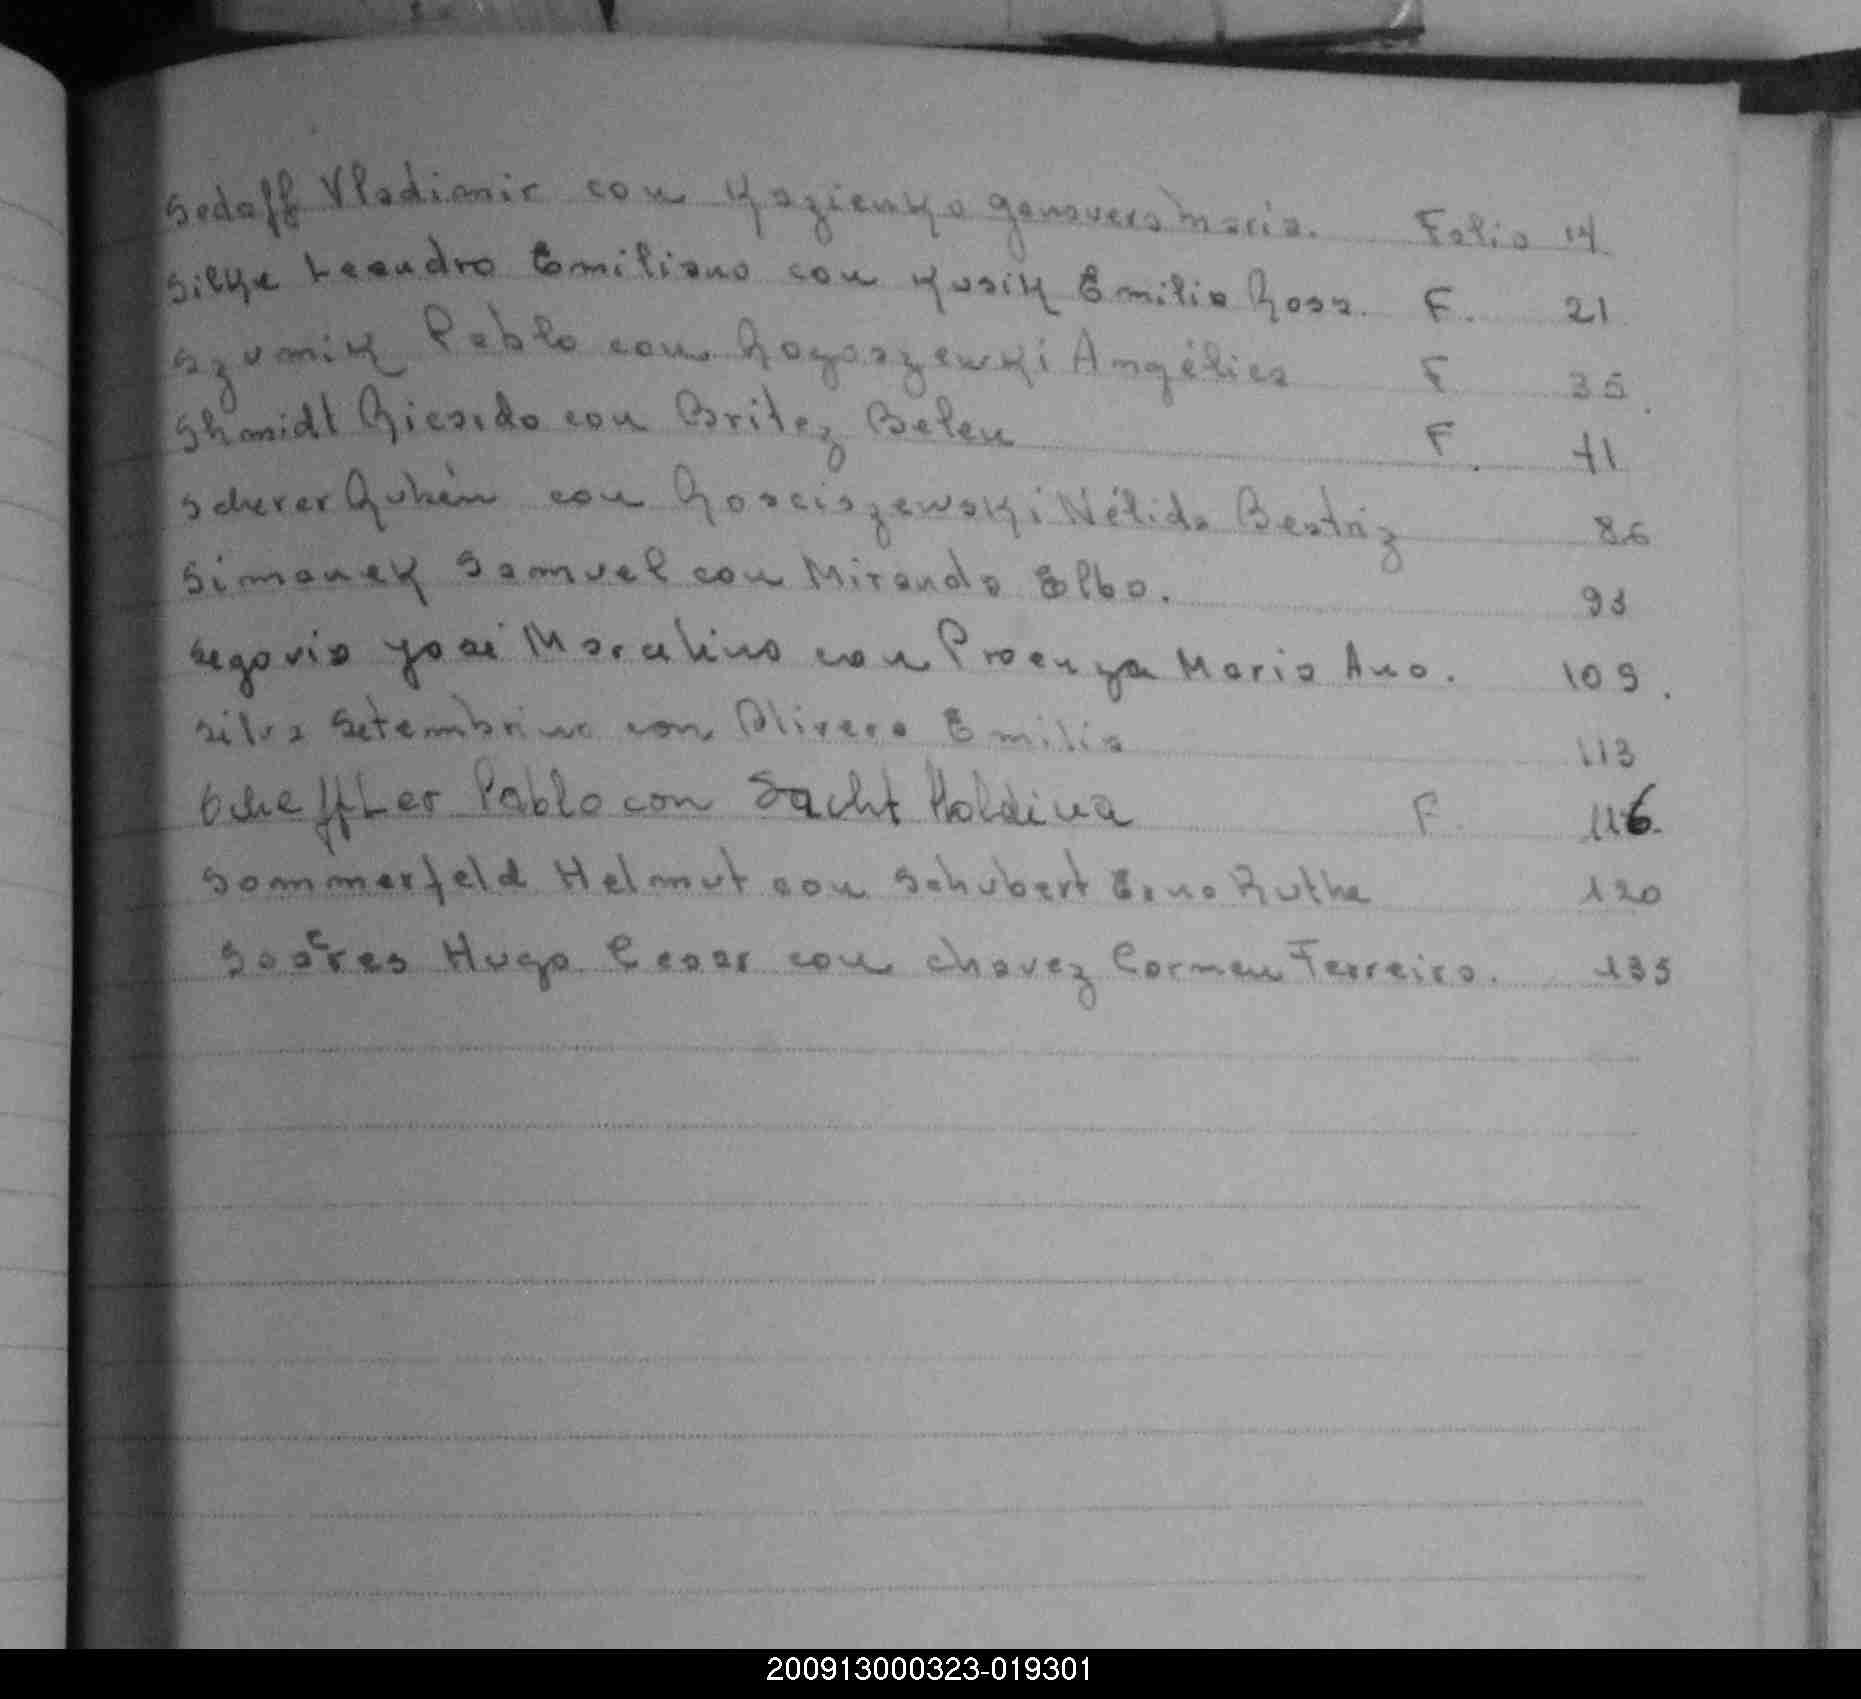 Sedoff Vladimir con Kozienko Genovera Maria. Folio 14
Silke Leandro Emiliano con Kusik Emilia Rosa. F. 21
Szumik Pablo con Rogoszewki Angélica F 35.
Shmidt Ricardo con Britez Belen F. 41
Scherer Rubén con Rosciszewski Nélida Beatriz 86
Simonek Samuel con Miranda Elba. 93
Segovia José Marcelino con Proenza Maria Ana. 109.
Silva Setembrino con Olivera Emilia 113
Scheffler Pablo con Sacht Holdina F. 116.
Sommerfeld Helmut con Schubert Erna Ruthe 120
Soares Hugo Cesar con Chavez Carmen Ferreira. 135
200913000323-019301